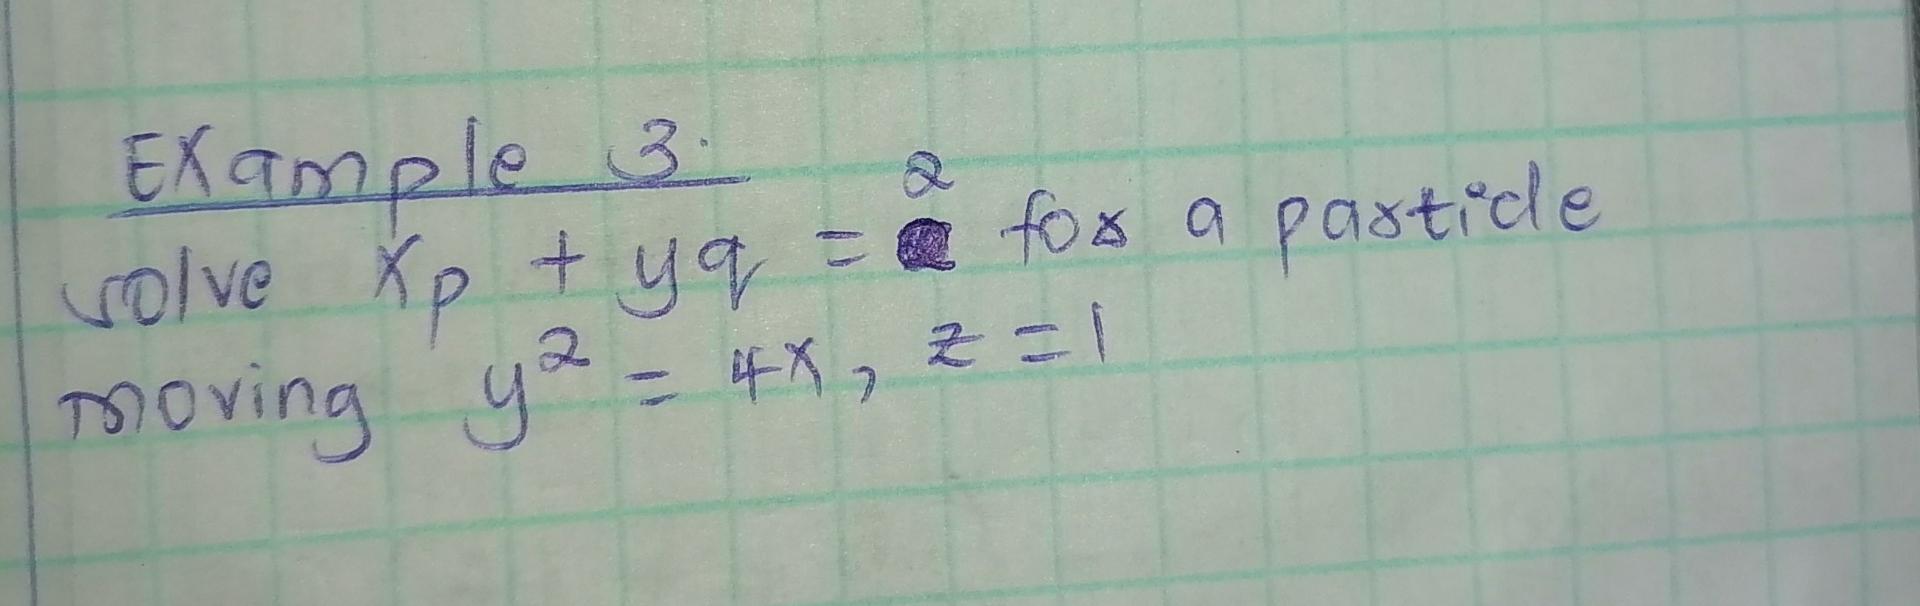 Example 3.
solve xp + yq = 2 for a particle
moving y² = 4x, z = 1